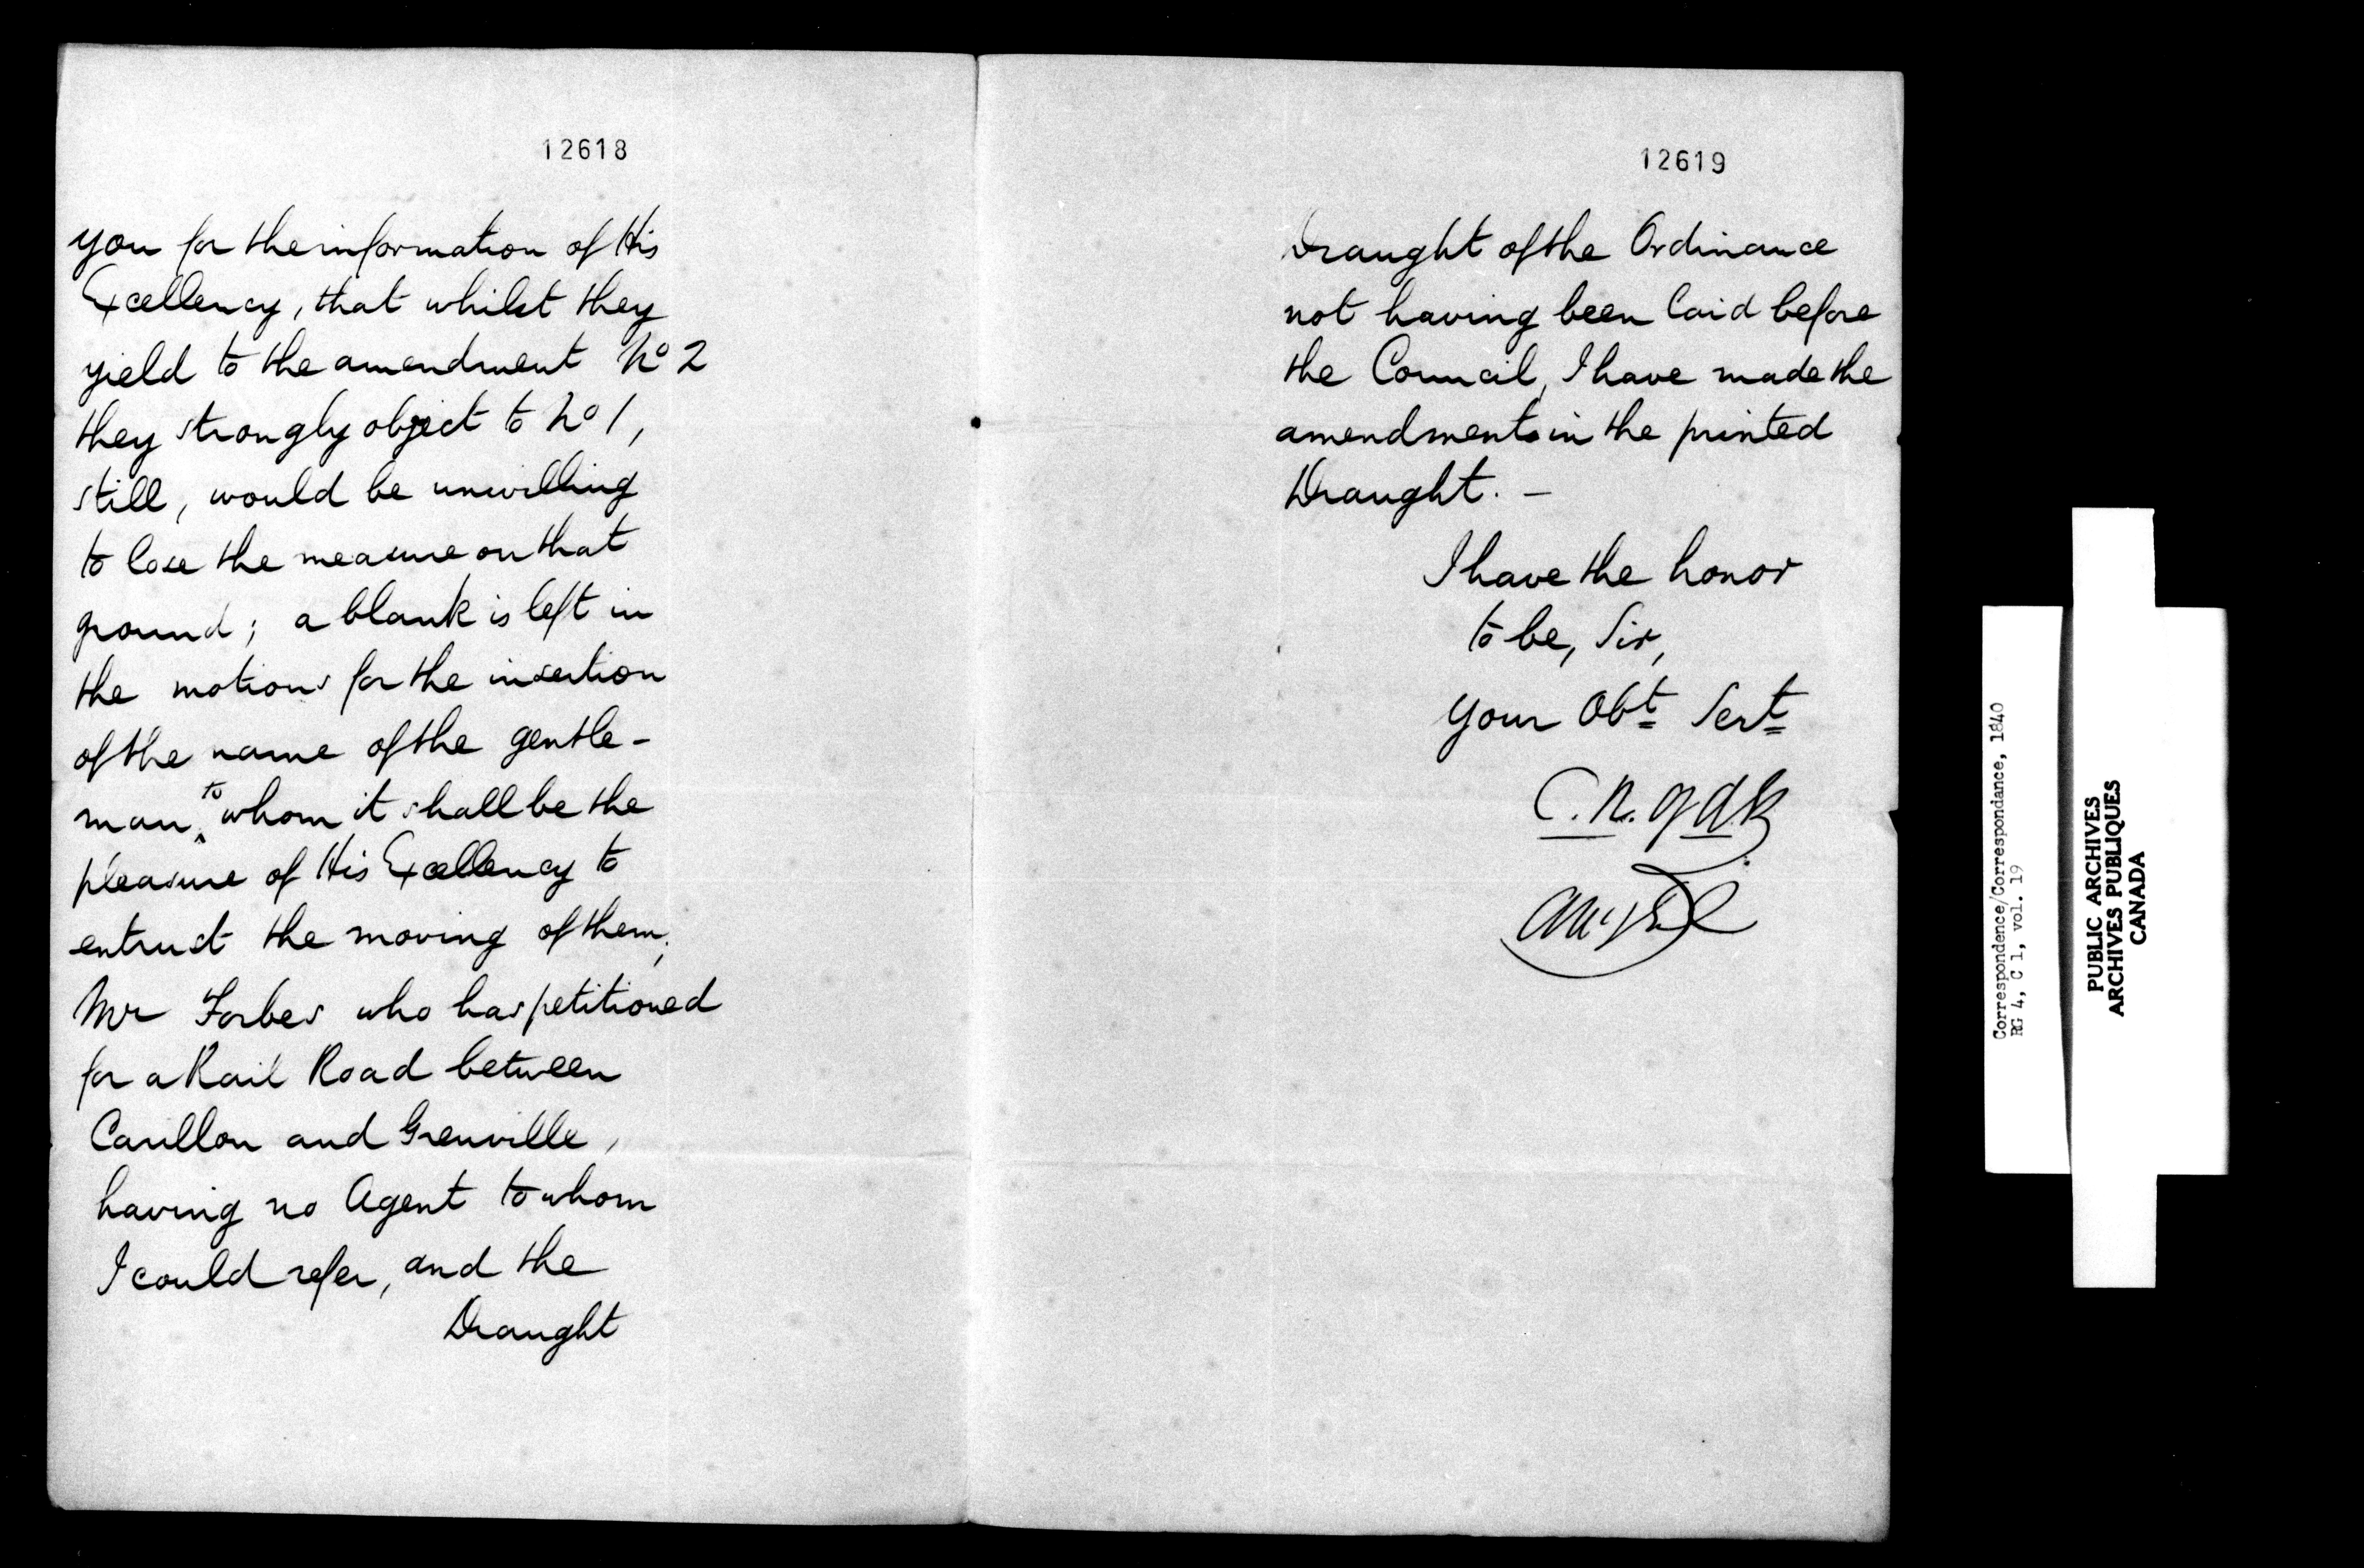 12618
you for the information of His
Excellency, that whilst they
yield to the amendment No 2
they strongly object to No 1,
still, would be unwilling
to lose the measure on that
ground; a blank is left in
the motions for the insertion
of the name of the gentle-
man to whom it shall be the
pleasure of His Excellency to
entrust the moving of them;
Mr Forbes who has petitioned
for a Rail Road between
Carillon and Grenville,
having no Agent to whom
I could refer, and the
Draught
12619
Draught of the Ordinance
not having been laid before
the Council, I have made the
amendments in the printed
Draught. -
I have the honor
to be, Sir,
your Obt Sert
Correspondence/Correspondance, 1840
RG 4, C 1, vol. 19
PUBLIC ARCHIVES
ARCHIVES PUBLIQUES
CANADA